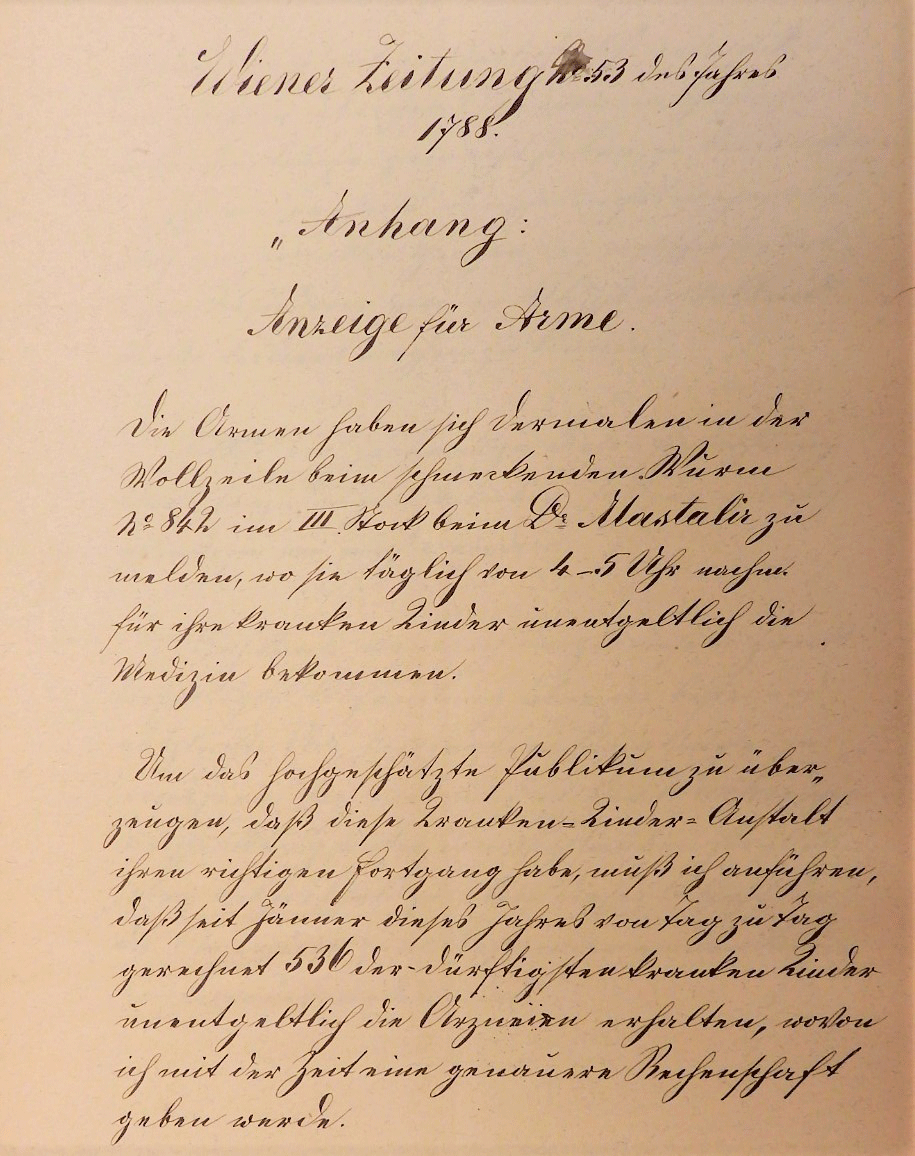 Wiener Zeitung No 53 des Jahres
1788.
„Anhang:
Anzeige für Arme.
Die Armen haben sich dermalen in der
Wollzeile beim schmeckenden Wurm
No 842 im III. Stock beim Dr Mastalir zu
melden, wo sie täglich von 4–5 Uhr nachm.
für ihre kranken Kinder unentgeltlich die
Medizin bekommen.
Um das hochgeschätzte Publikum zu über„
zeugen, daß diese Kranken=Kinder=Anstalt
ihren richtigen Fortgang habe, muß ich anführen,
daß seit Jänner dieses Jahres von Tag zu Tag
gerechnet 536 der dürftigsten kranken Kinder
unentgeltlich die Arzneien erhalten, wovon
ich mit der Zeit eine genauere Rechenschaft
geben werde.